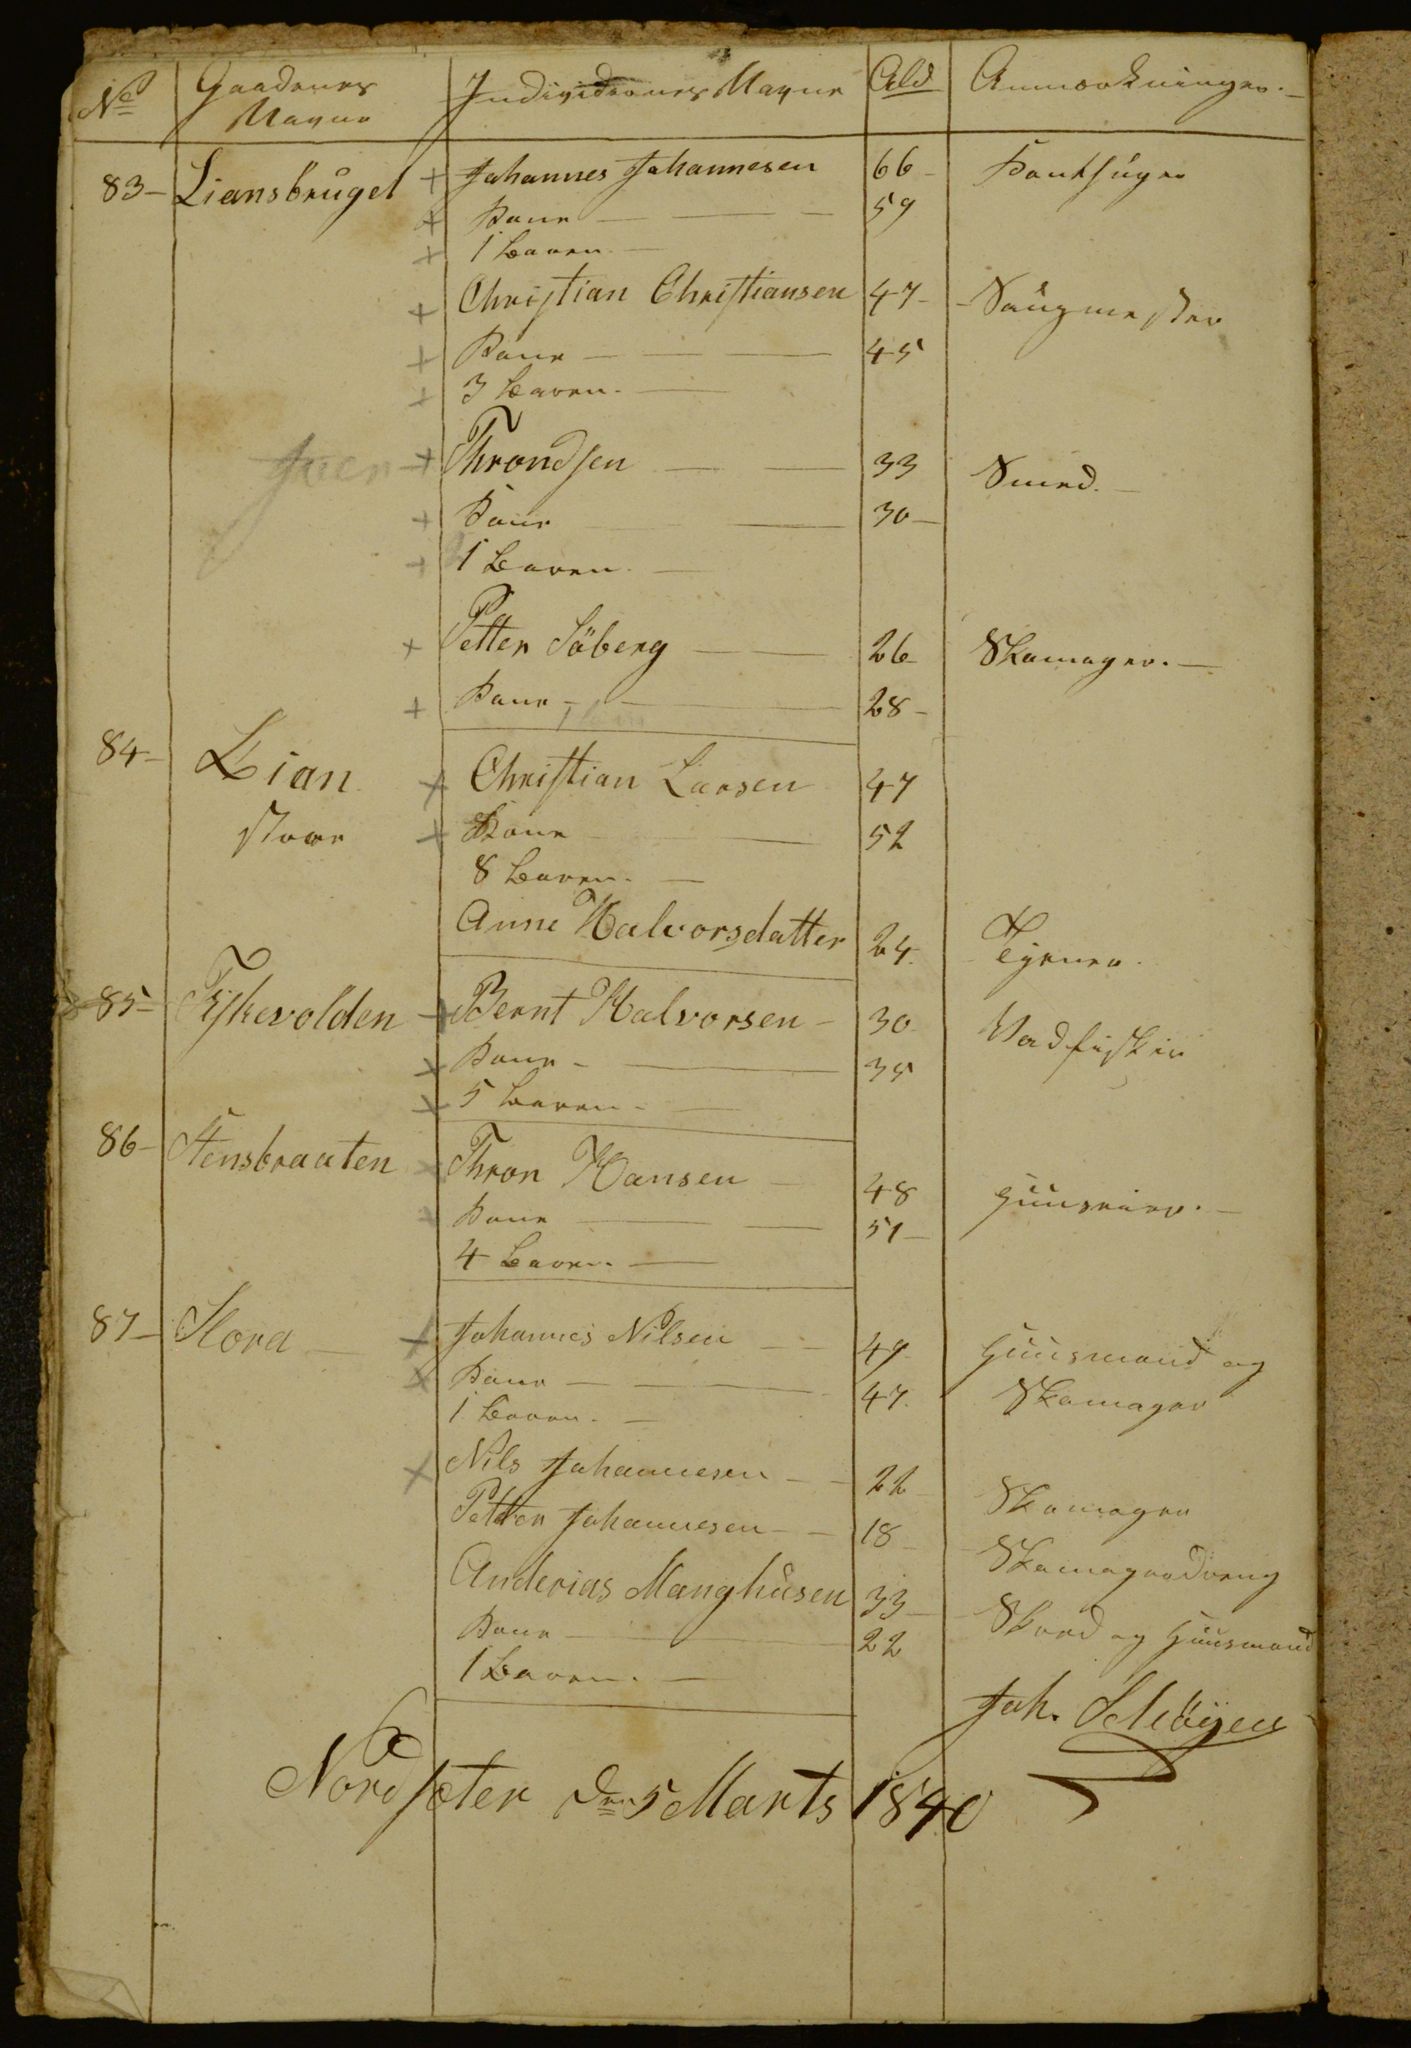 No Gaardenes Navne Individernes Navne Ald Anmærkninger.
83 Liansbruget Johannes Johannesen 66 Kantsuger
Kone 59
1 Baren
Christian Christiansen 47 Saugmester
Kone 45
3 Baren.
Throndsen 33 Smed.
Kone 30
1 Baren.
Petter Söberg 26 Skomager.
Kone 28
84 Lian Christian Larsen 47
store Kone 52
8 Baren.
Anne Halvorsdatter 24. Tjener.
85 Fiskevolden Bernt Halvorsen 30 Vadfisker
Kone 35
5 Baren.
86 Stensbraaten Thron Hansen 48 Huuseier.
Kone 51
4 Baren.
87 Flora Johannes Nilsen 49 Huusmand og
Kone 47. Skomager
1 Baren.
Nils Johannesen 22 Skomager
Petter Johannesen 18 Skomagerdreng
Anderias Manghusen 33 Skred og Huusmand
Kone 22
1 Baren.
Joh. Schöyen
Nordseter den 5 Marts 1840